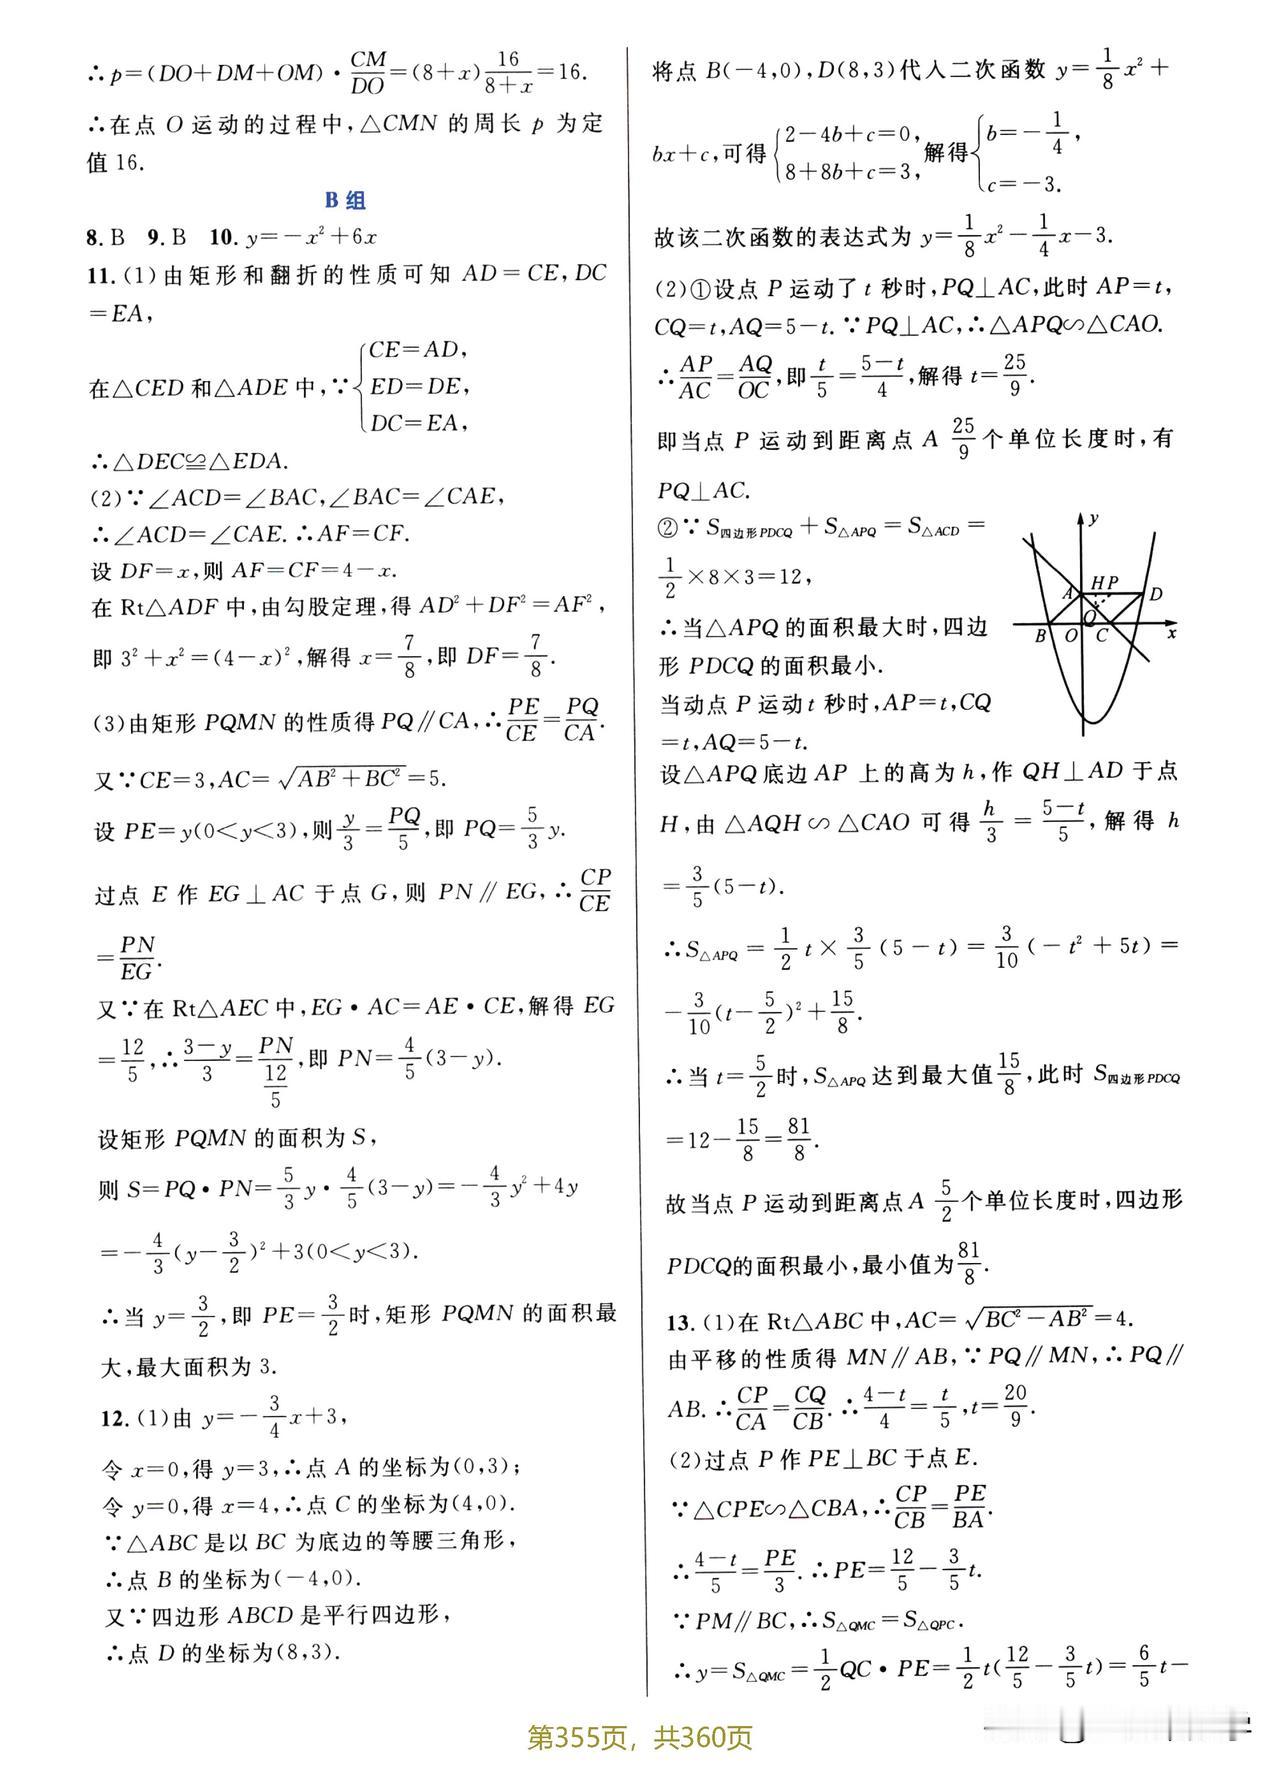 ∴p=(DO+DM+OM)·CM/DO=(8+x)16/(8+x)=16.
∴在点 O 运动的过程中,△CMN 的周长 p 为定
值 16.
B 组
8. B 9. B 10. y=-x²+6x
11. (1)由矩形和翻折的性质可知 AD=CE,DC
=EA,
在△CED 和△ADE 中,∵{CE=AD,
ED=DE,
DC=EA,
∴△DEC≌△EDA.
(2)∵∠ACD=∠BAC,∠BAC=∠CAE,
∴∠ACD=∠CAE.∴AF=CF.
设 DF=x,则 AF=CF=4-x.
在 Rt△ADF 中,由勾股定理,得 AD²+DF²=AF²,
即 3²+x²=(4-x)²,解得 x=7/8,即 DF=7/8.
(3)由矩形 PQMN 的性质得 PQ∥CA,∴PE/CE=PQ/CA.
又∵CE=3,AC=√(AB²+BC²)=5.
设 PE=y(0<y<3),则 y/3=PQ/5,即 PQ=5/3y.
过点 E 作 EG⊥AC 于点 G,则 PN∥EG,∴CP/CE
=PN/EG.
又∵在 Rt△AEC 中,EG·AC=AE·CE,解得 EG
=12/5,∴(3-y)/3=PN/(12/5),即 PN=4/5(3-y).
设矩形 PQMN 的面积为 S,
则 S=PQ·PN=5/3y·4/5(3-y)=-4/3y²+4y
=-4/3(y-3/2)²+3(0<y<3).
∴当 y=3/2,即 PE=3/2时,矩形 PQMN 的面积最
大,最大面积为 3.
12. (1)由 y=-3/4x+3,
令 x=0,得 y=3,∴点 A 的坐标为(0,3);
令 y=0,得 x=4,∴点 C 的坐标为(4,0).
∵△ABC 是以 BC 为底边的等腰三角形,
∴点 B 的坐标为(-4,0).
又∵四边形 ABCD 是平行四边形,
∴点 D 的坐标为(8,3).
将点 B(-4,0),D(8,3)代入二次函数 y=1/8x²+
bx+c,可得{2-4b+c=0, 8+8b+c=3,解得{b=-1/4, c=-3.
故该二次函数的表达式为 y=1/8x²-1/4x-3.
(2)①设点 P 运动了 t 秒时,PQ⊥AC,此时 AP=t,
CQ=t,AQ=5-t.∵PQ⊥AC,∴△APQ∽△CAO.
∴AP/AC=AQ/OC,即 t/5=(5-t)/4,解得 t=25/9.
即当点 P 运动到距离点 A 25/9个单位长度时,有
PQ⊥AC.
②∵S四边形PDCQ+S△APQ=S△ACD=
1/2×8×3=12,
∴当△APQ 的面积最大时,四边
形 PDCQ 的面积最小.
当动点 P 运动 t 秒时,AP=t,CQ
=t,AQ=5-t.
y
H P
A
D
Q
B
O
C
x
设△APQ 底边 AP 上的高为 h,作 QH⊥AD 于点
H,由△AQH∽△CAO 可得 h/3=(5-t)/5,解得 h
=3/5(5-t).
∴S△APQ=1/2t×3/5(5-t)=3/10(-t²+5t)=
-3/10(t-5/2)²+15/8.
∴当 t=5/2时,S△APQ达到最大值15/8,此时 S四边形PDCQ
=12-15/8=81/8.
故当点 P 运动到距离点 A 5/2个单位长度时,四边形
PDCQ的面积最小,最小值为81/8.
13. (1)在 Rt△ABC 中,AC=√(BC²-AB²)=4.
由平移的性质得 MN∥AB,∵PQ∥MN,∴PQ∥
AB.∴CP/CA=CQ/CB.∴(4-t)/4=t/5,t=20/9.
(2)过点 P 作 PE⊥BC 于点 E.
∵△CPE∽△CBA,∴CP/CB=PE/BA.
∴(4-t)/5=PE/3.∴PE=12/5-3/5t.
∵PM∥BC,∴S△QMC=S△QPC.
∴y=S△QMC=1/2QC·PE=1/2t(12/5-3/5t)=6/5t-
第355页,共360页